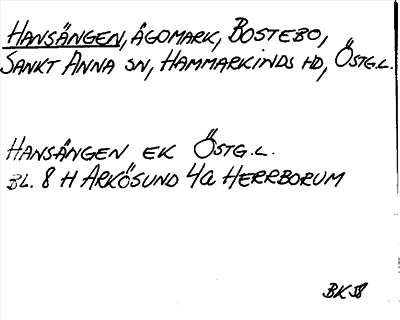 HANSÄNGEN, ÄGOMARK, BOSTEBO,
SANKT ANNA SN, HAMMARKINDS HD, ÖSTG.L.
HANSÄNGEN EK ÖSTG.L.
BL. 8 H ARKÖSUND 4a HERRBORUM
BK 58